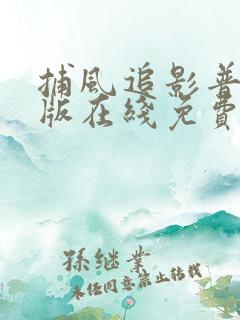 捕風追影普
版在綫免費
孫继業
未经同意禁止转载